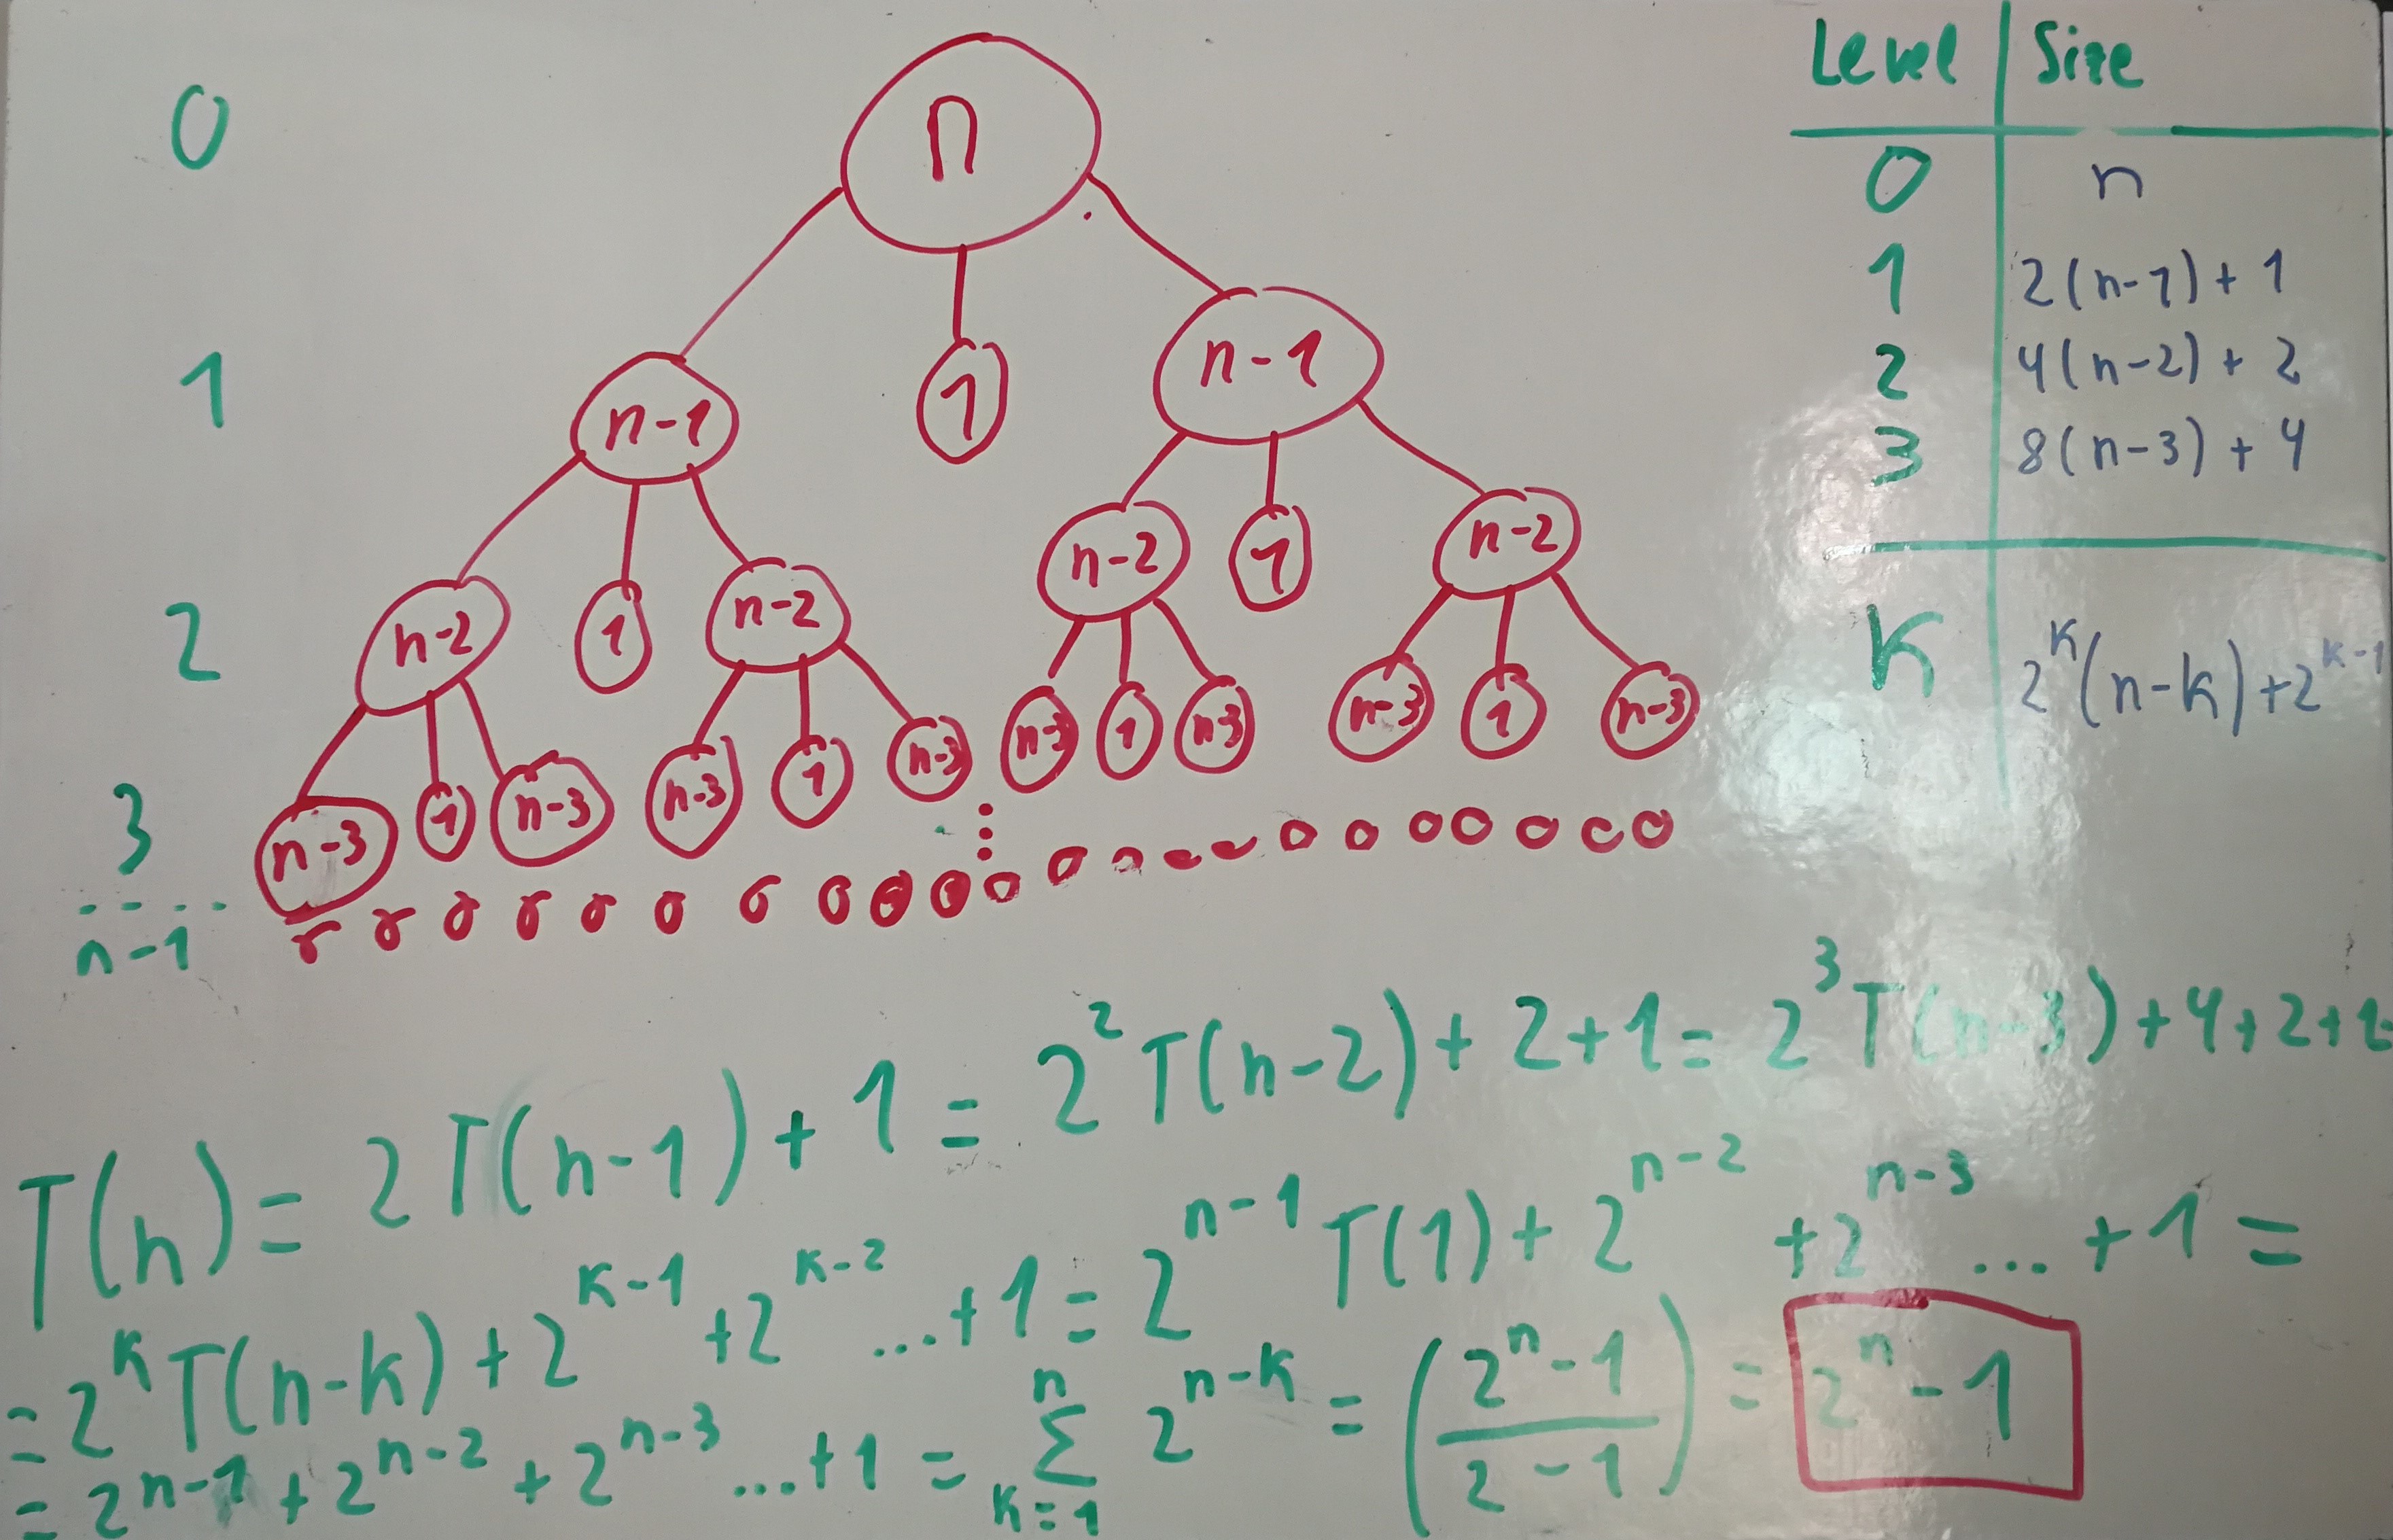 0
n
1
n-1
1
n-1
2
n-2
1
n-2
n-2
1
n-2
3
n-3
1
n-3
n-3
1
n-3
n-3
1
n-3
n-3
1
n-3
....
n-1
Level | Size
0 | n
1 | 2(n-1)+1
2 | 4(n-2)+2
3 | 8(n-3)+4
K | 2^K(n-k)+2^{K-1}
T(n) = 2T(n-1)+1 = 2^2T(n-2)+2+1 = 2^3T(n-3)+4+2+1
= 2^KT(n-k)+2^{K-1}+2^{K-2}...+1 = 2^{n-1}T(1)+2^{n-2}+2^{n-3}...+1 =
= 2^{n-1}+2^{n-2}+2^{n-3}...+1 = \sum_{K=1}^{n} 2^{n-K} = (\frac{2^n-1}{2-1}) = 2^n-1